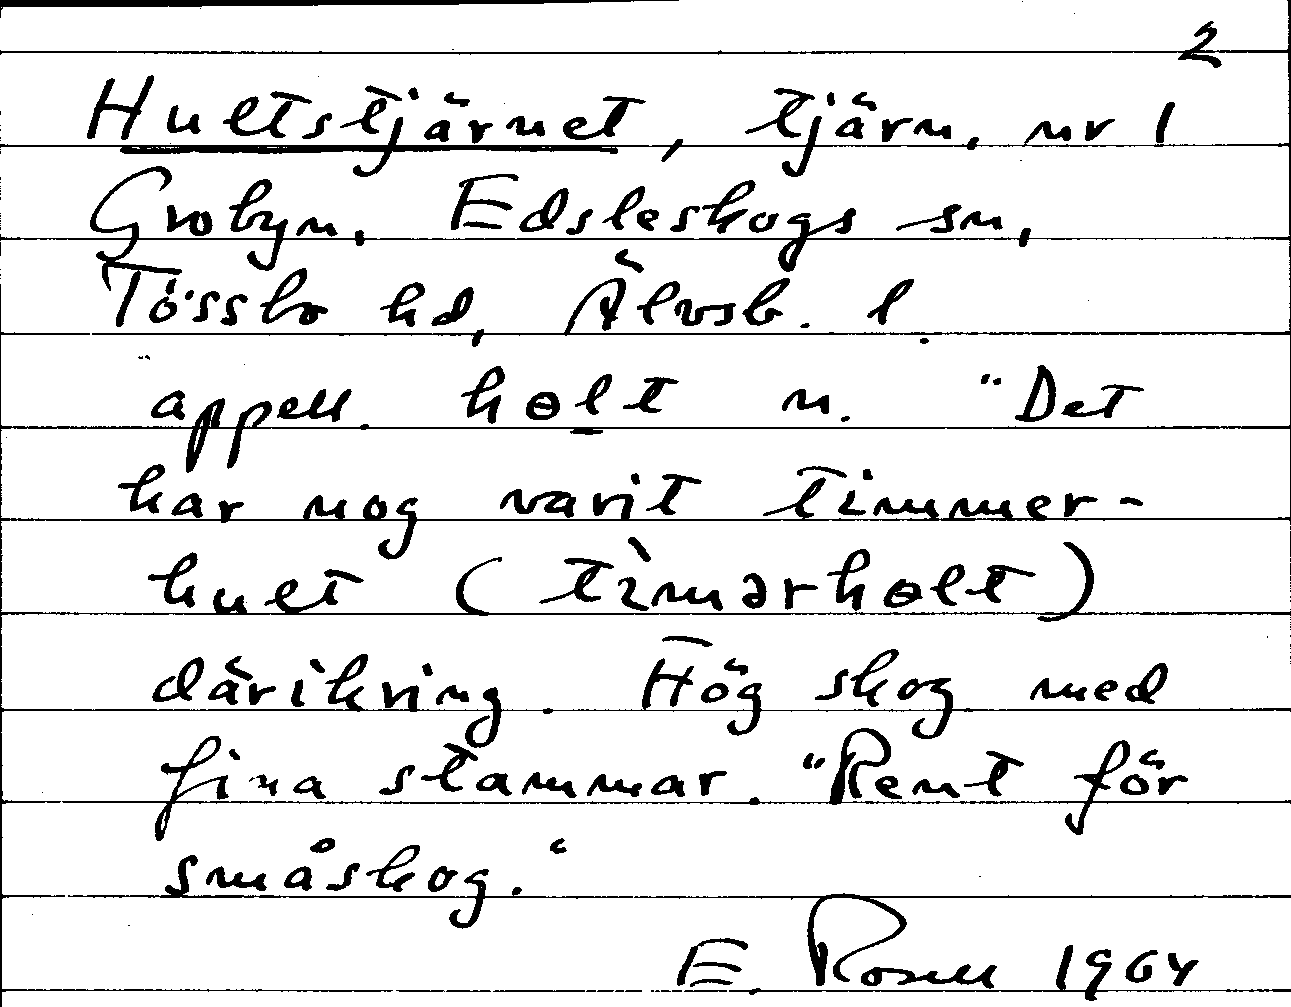 2
Hultstjärnet, tjärn, nr 1
Grobyn, Edsleskogs sn,
Tössbo hd, Älvsb. l.
appell. hɵlt n. "Det
har nog varit timmer-
hult (tìmərhɵlt)
däríkring. Hög skog med
fina stammar. "Rent för
småskog."
E. Rosell 1964